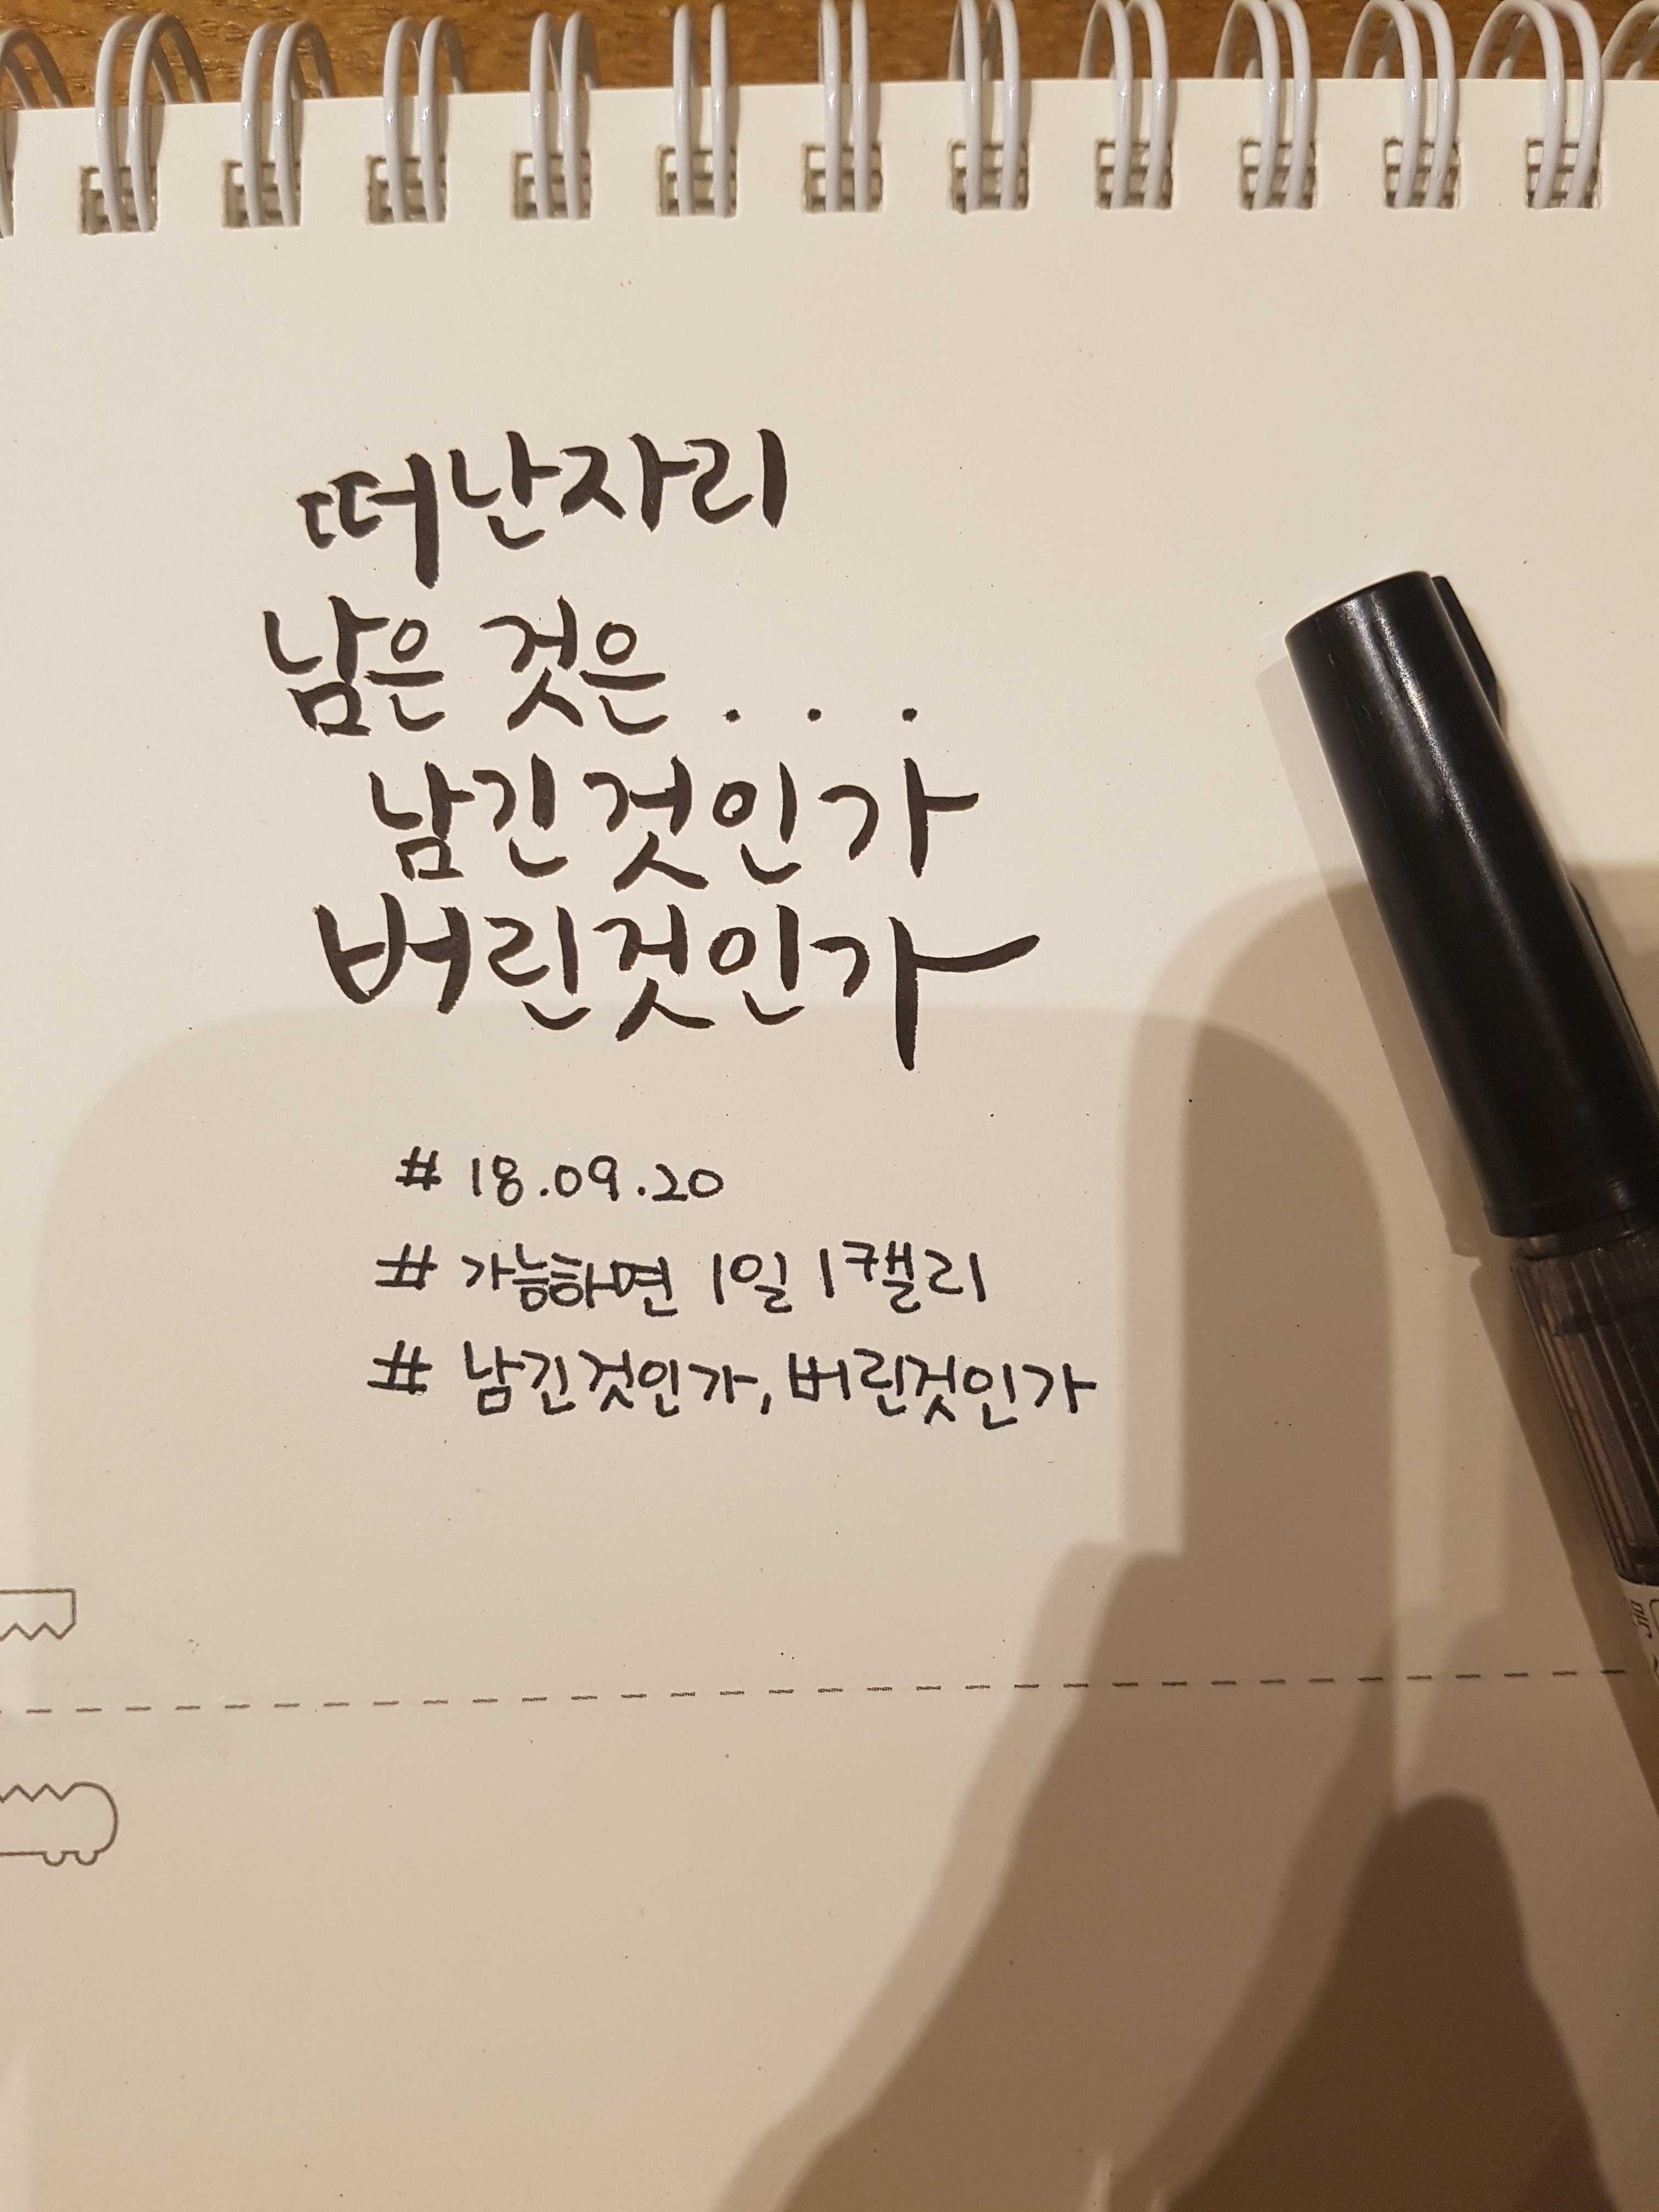 떠난자리
남은 것은 . . .
남긴것인가
버린것인가
# 18.09.20
# 가능하면 1일 1캘리
# 남긴것인가, 버린것인가